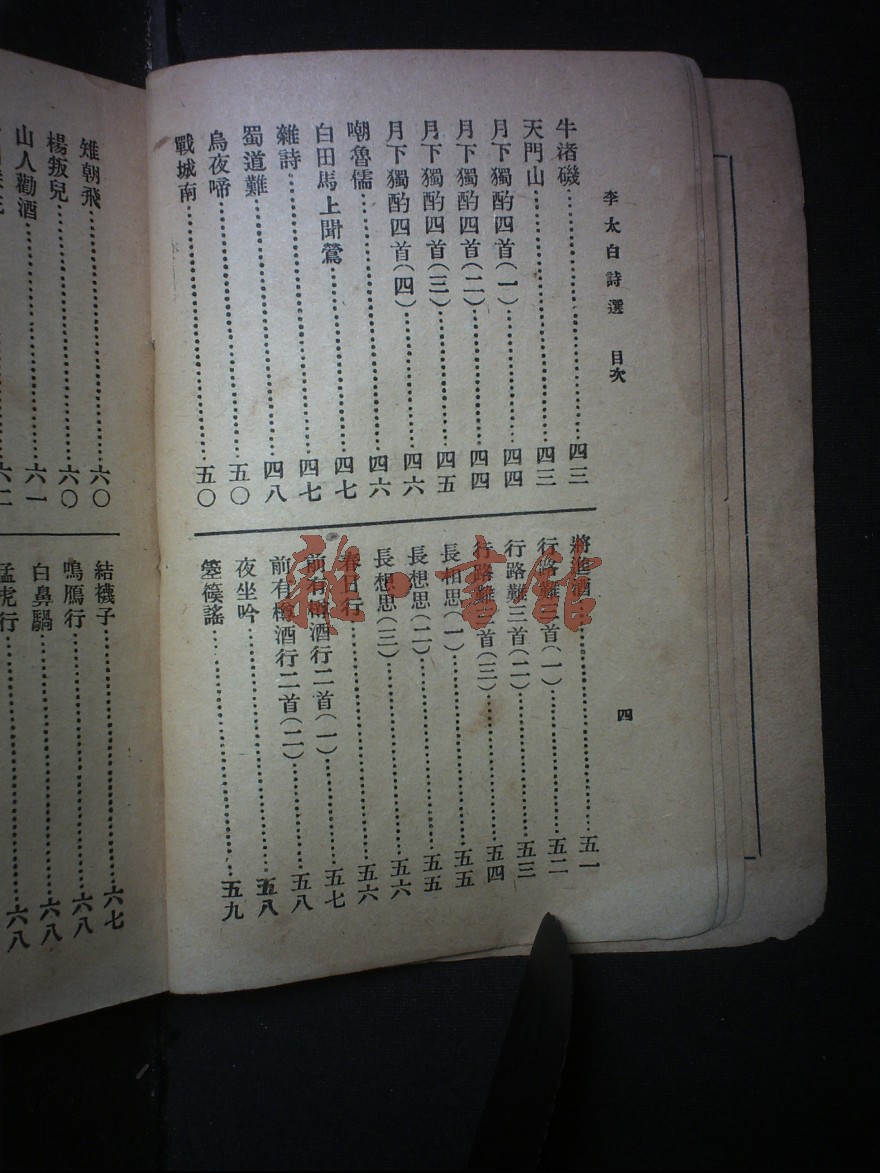 李太白詩選 目次
四
牛渚磯………四三
天門山………四三
月下獨酌四首(一)………四四
月下獨酌四首(二)………四四
月下獨酌四首(三)………四五
月下獨酌四首(四)………四六
嘲魯儒………四六
白田馬上聞鶯………四七
雜詩………四七
蜀道難………四八
烏夜啼………五〇
戰城南………五〇
將進酒………五一
行路難三首(一)………五二
行路難三首(二)………五三
行路難三首(三)………五四
長相思(一)………五五
長想思(二)………五五
長想思(三)………五六
春日行………五六
前有樽酒行二首(一)………五七
前有樽酒行二首(二)………五八
夜坐吟………五八
箜篌謠………五九
雉朝飛………六〇
楊叛兒………六〇
山人勸酒………六一
六二
結襪子………六七
鳴鴈行………六八
白鼻騧………六八
猛虎行………六八
雜·書館